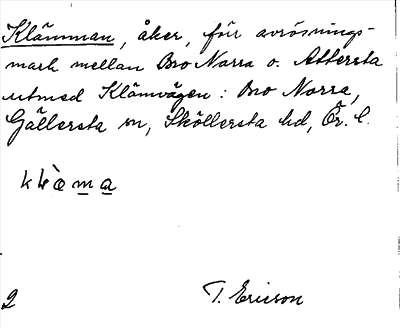 Klämman, åker, förr avrösnings-
mark mellan Bro Norra o. Attersta
utmed Klämvägen: Bro Norra,
Gällersta sn, Sköllersta hd, Ör. l.
2
T. Ericson